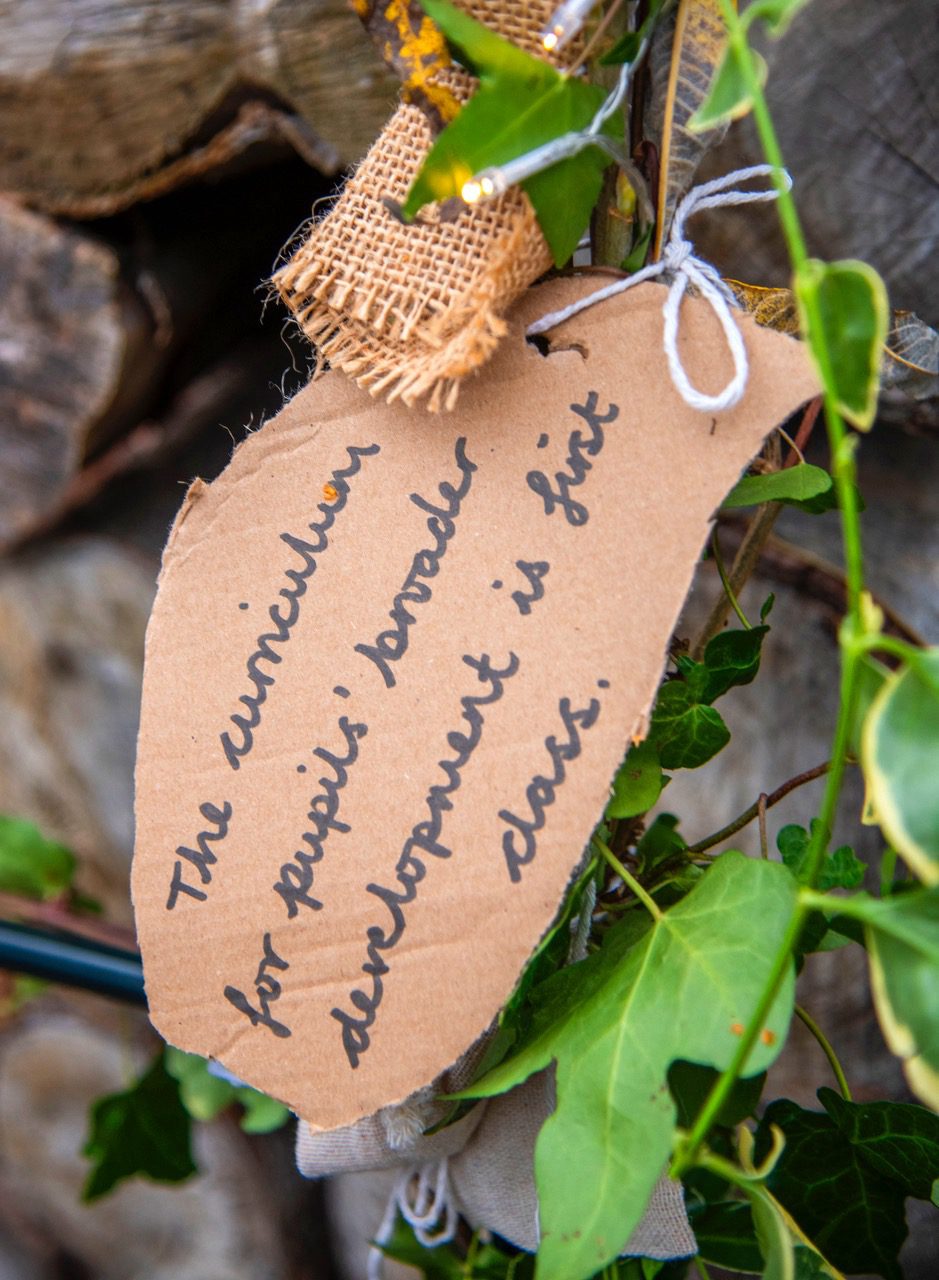 The curriculum
for pupils' broader
development is first
class.